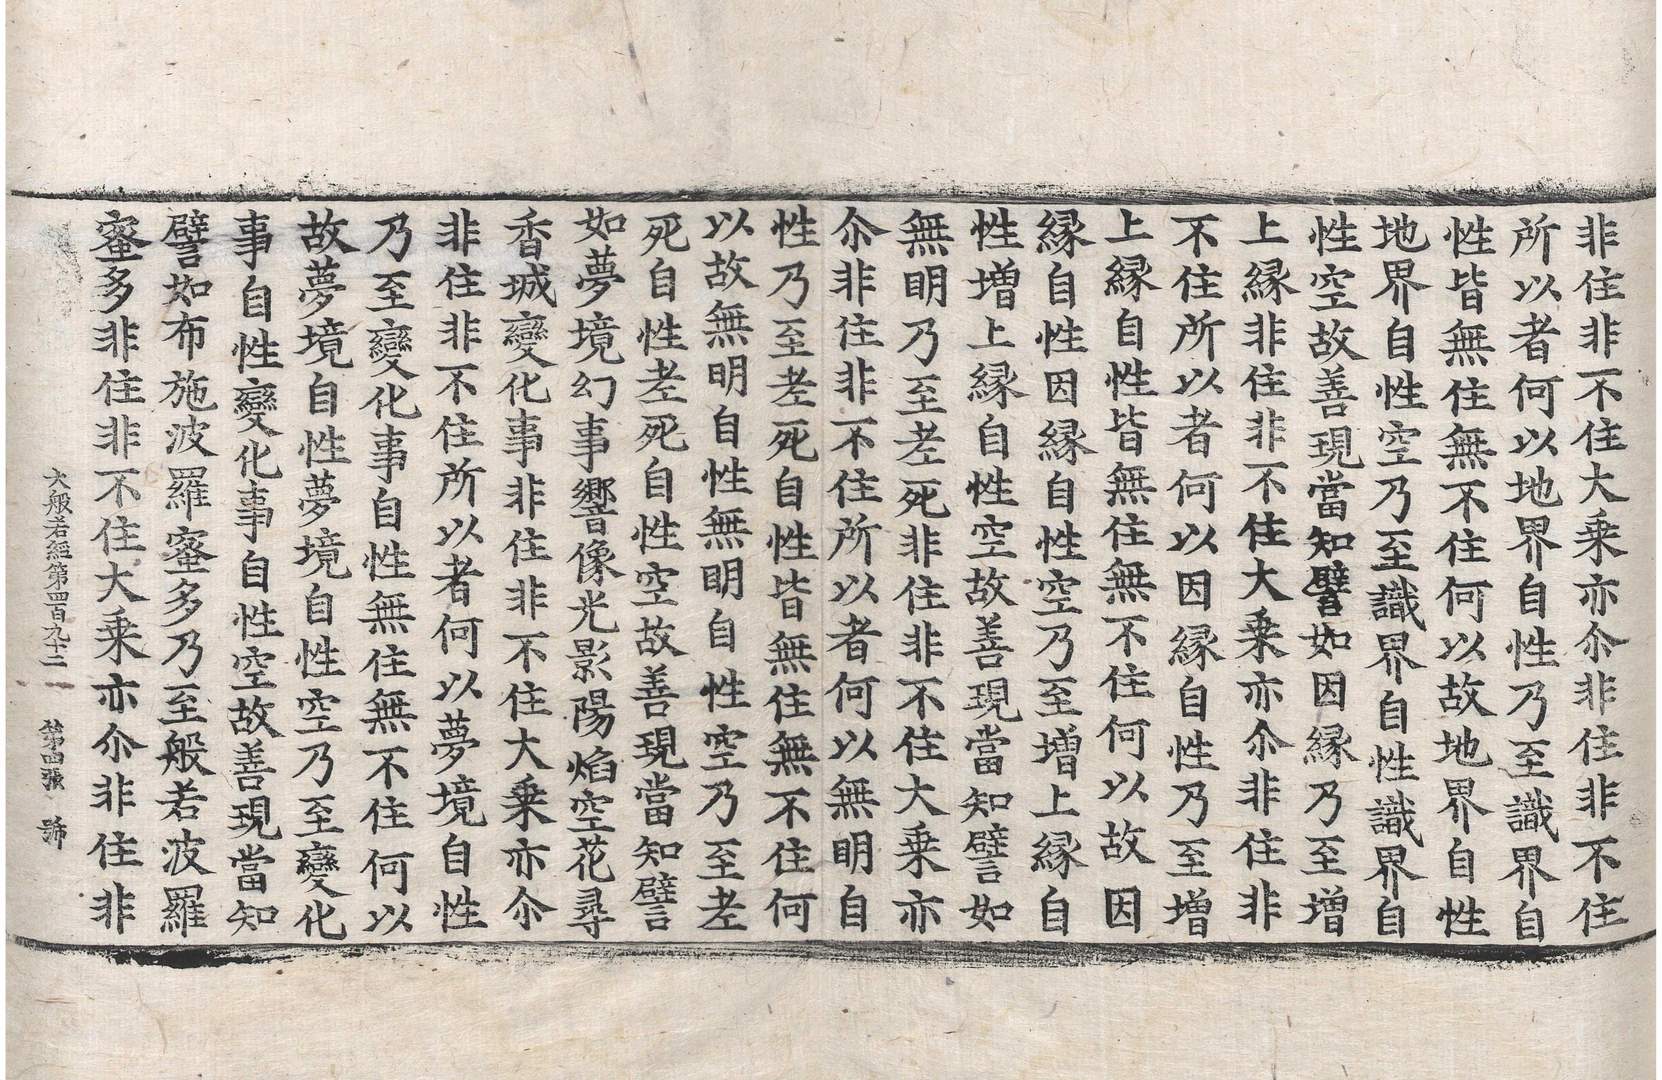 非住非不住大乗亦尒非住非不住
所以者何以地界自性乃至識界自
性皆無住無不住何以故地界自性
地界自性空乃至識界自性識界自
性空故善現當知譬如因縁乃至增
上縁非住非不住大乗亦尒非住非
不住所以者何以因縁自性乃至增
上縁自性皆無住無不住何以故因
縁自性因縁自性空乃至增上縁自
性增上縁自性空故善現當知譬如
無明乃至老死非住非不住大乗亦
尒非住非不住所以者何以無明自
性乃至老死自性皆無住無不住何
以故無明自性無明自性空乃至老
死自性老死自性空故善現當知譬
如夢境幻事響像光影陽焰空花尋
香城變化事非住非不住大乗亦尒
非住非不住所以者何以夢境自性
乃至變化事自性無住無不住何以
故夢境自性夢境自性空乃至變化
事自性變化事自性空故善現當知
譬如布施波羅蜜多乃至般若波羅
蜜多非住非不住大乗亦尒非住非
大般若經第四百九十二 第四張 號